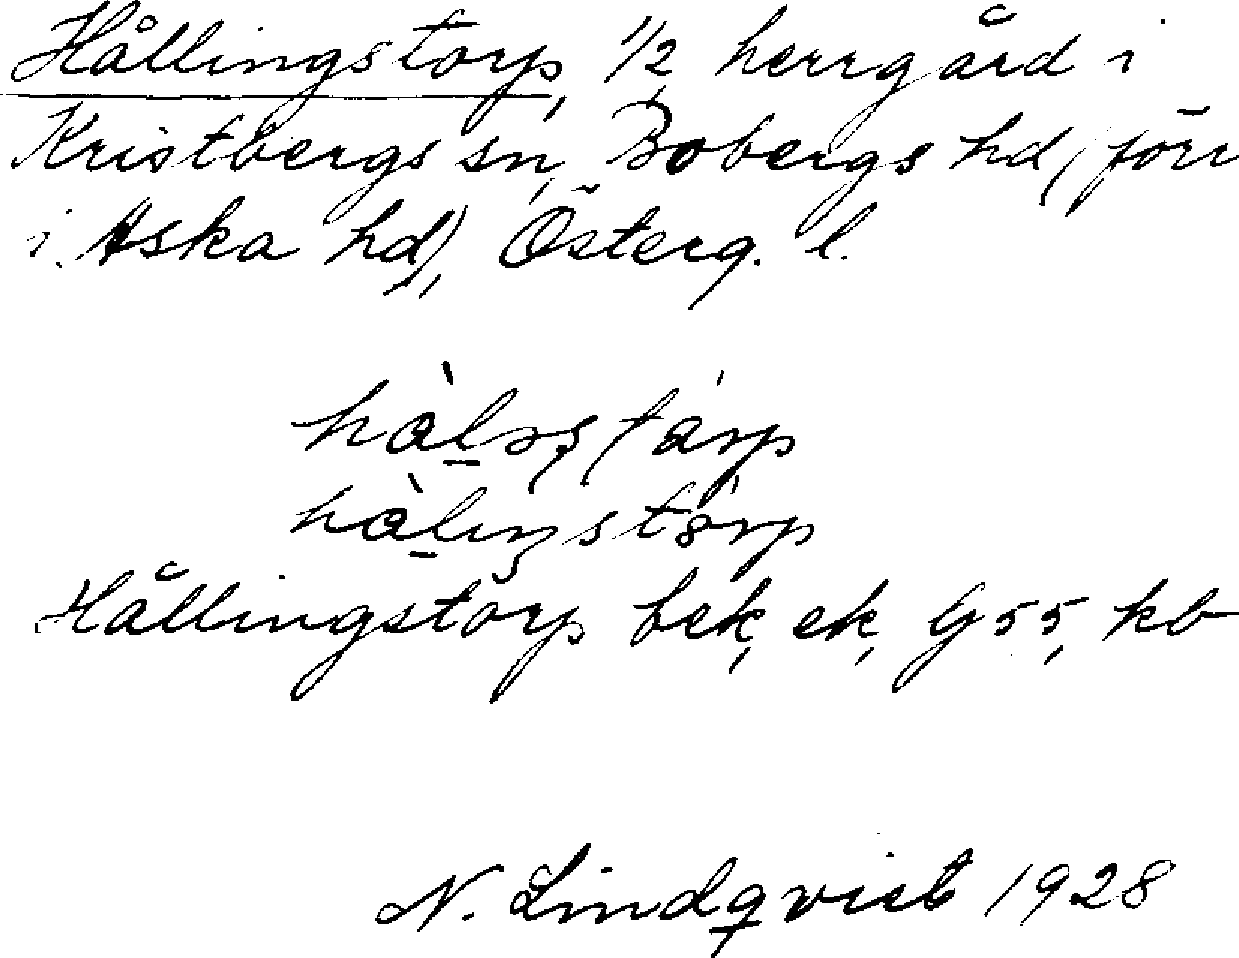 Hållingstorp, 1/2 herrgård i
Kristbergs sn, Bobergs hd, (förr
i Aska hd), Österg. l.
Hållingstorp bek, ek, G 55, kb
N. Lindqvist 1928